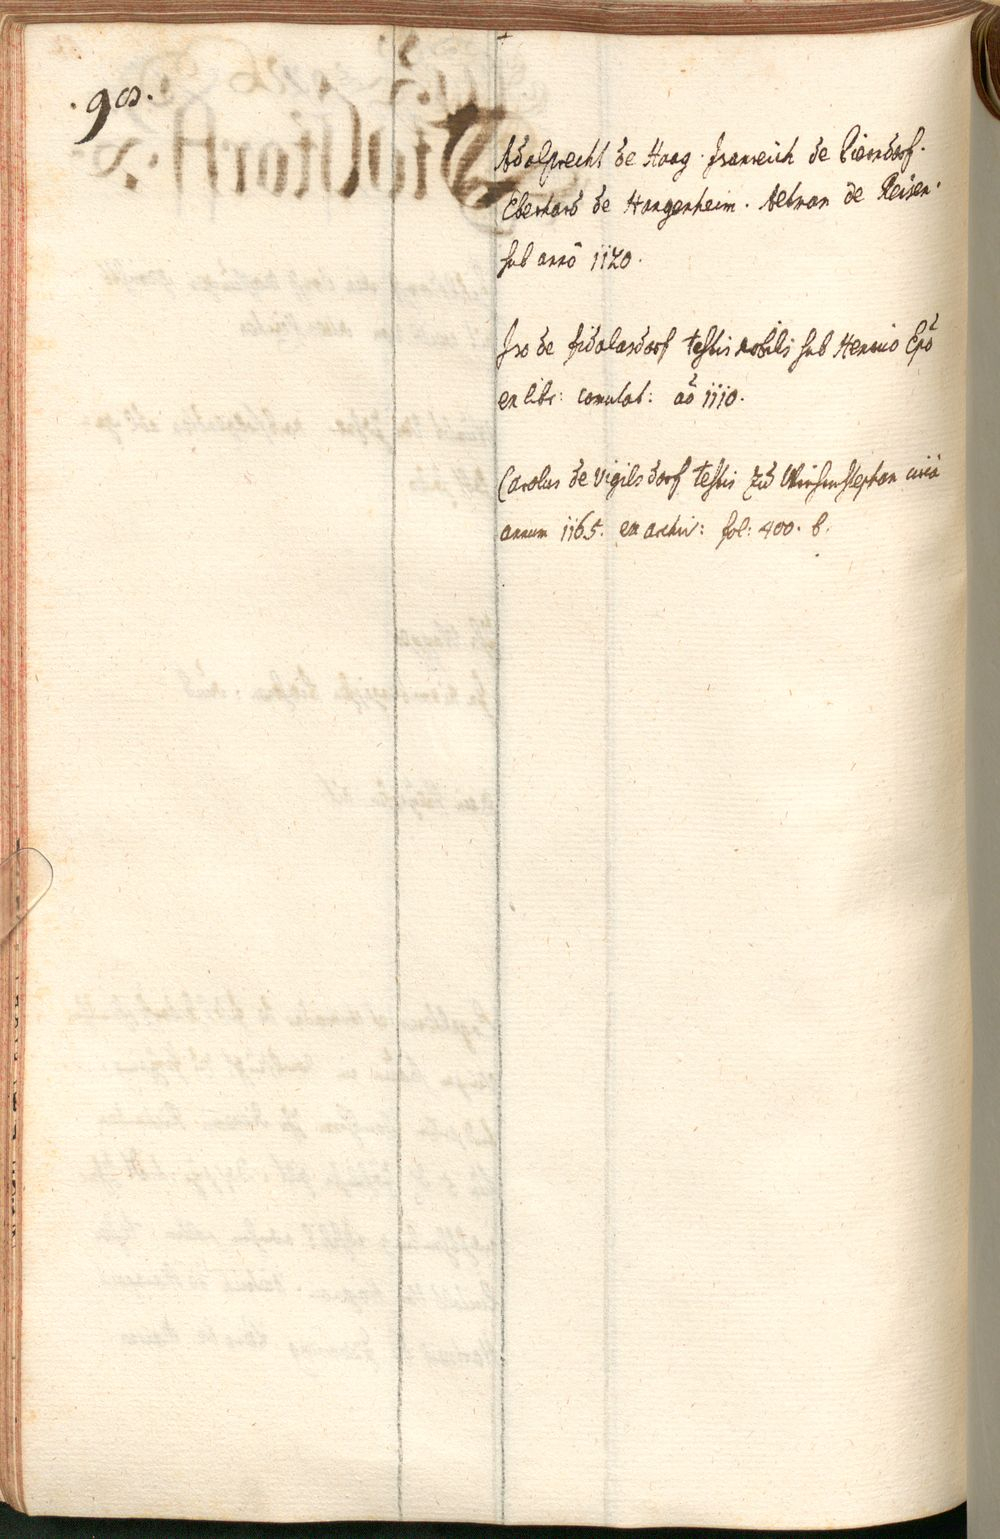 .98.
Adolprecht de Haag. Isanreich de Piersdorf.
Eberhard de Hangenheim. Altman de Reisen.
sub anno 1120.
Iso de fidolasdorf testis nobilis sub Henrico Epõ
ex libr: comutat: aõ 1110.
Carolus de Vigilsdorf testis zu Weihenstephan circa
annum 1165. ex archiv: fol: 400. b.